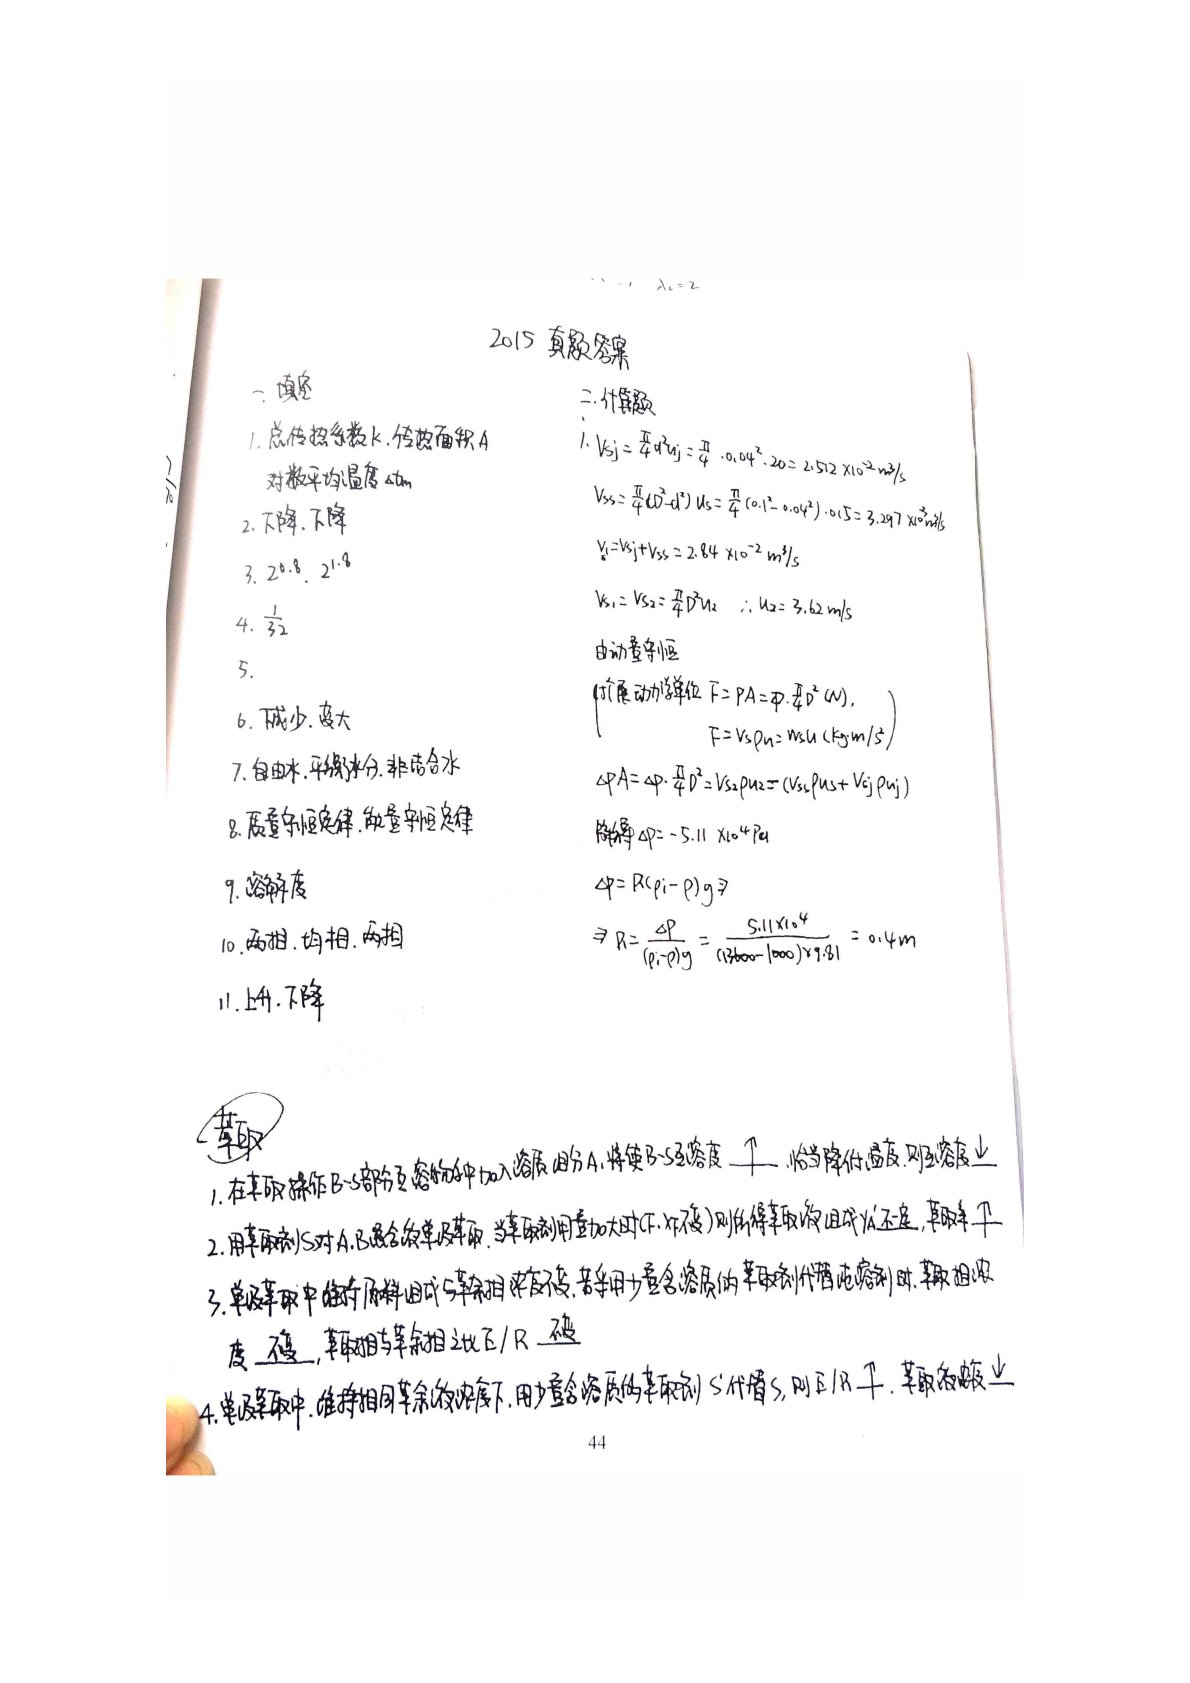 λ₂=2
2015 真题答案
一. 填空
1. 总传热系数K. 传热面积A
对数平均温度 Δtm
2. 下降. 下降
3. 2^0.8. 2^1.8
4. 1/32
5.
6. 减少. 变大
7. 自由水. 平衡水分. 非结合水
8. 质量守恒定律. 能量守恒定律
9. 溶解度
10. 两相. 均相. 两相
11. 上升. 下降
二. 计算题
1. Vsj = π/4 d²uj = π/4 · 0.04² · 20 = 2.512 ×10⁻² m³/s
Vss = π/4 (D²-d²) us = π/4 (0.1²-0.04²) · 0.5 = 3.297 ×10⁻³ m³/s
Vs1 = Vsj + Vss = 2.84 ×10⁻² m³/s
Vs1 = Vs2 = π/4 D²u2 ∴ u2 = 3.62 m/s
由动量守恒
(扩展动力学单位 F = PA = P · π/4 D² (N).
F = Vsρu = wsu (kg·m/s²))
ΔPA = ΔP · π/4 D² = Vs2ρu2 - (Vssρus + Vsjρuj)
解得 ΔP = -5.11 ×10⁴ Pa
ΔP = R(ρi-ρ)g ⇒
⇒ R = ΔP/(ρi-ρ)g = 5.11×10⁴/(13600-1000)×9.81 = 0.4m
萃取
1. 在萃取操作B-S部分互溶物系中加入溶质组分A, 将使B-S互溶度 ↑ . 恰当降低温度. 则互溶度 ↓
2. 用萃取剂S对A.B混合液单级萃取. 当萃取剂用量加大时(F. xF不变) 则所得萃取液组成yA'不定, 萃取率 ↑
3. 单级萃取中 维持原料组成与萃余相浓度不变. 若采用少量含溶质的萃取剂代替纯溶剂时. 萃取相浓
度 不变 , 萃取相与萃余相之比E/R 不变
4. 单级萃取中. 维持相同萃余液浓度下. 用少量含溶质的萃取剂S'代替S, 则E/R ↑ . 萃取液浓度 ↓
44